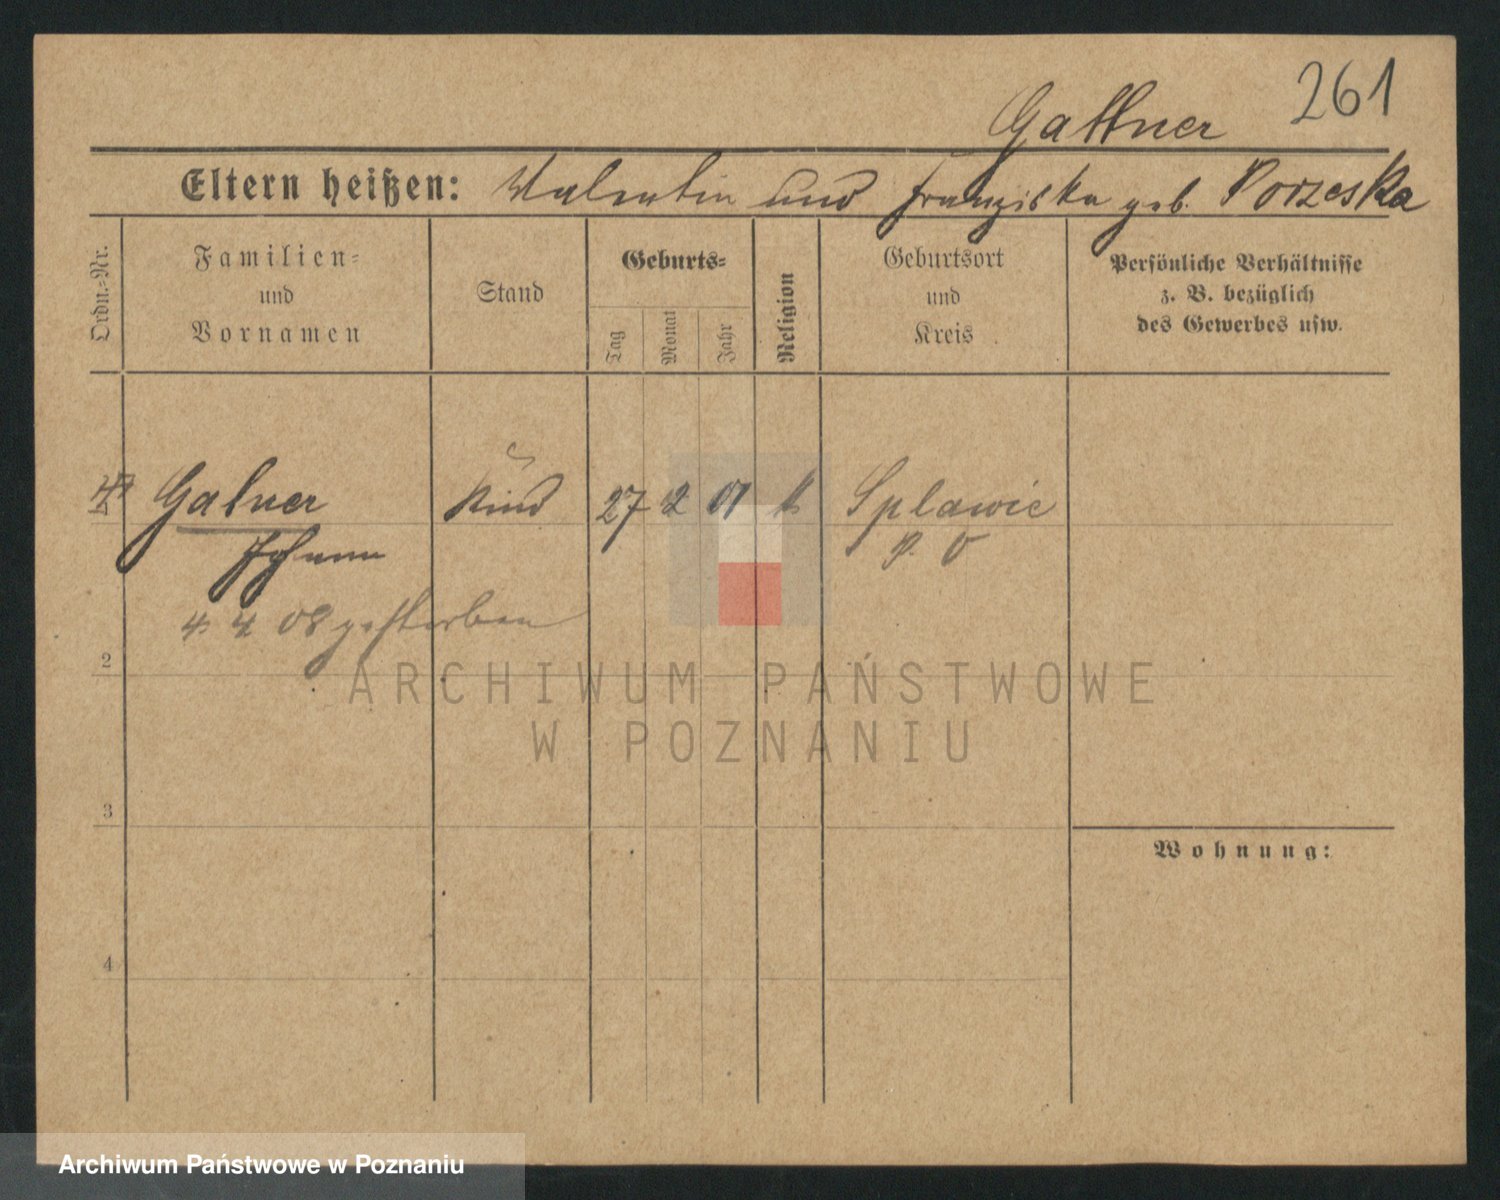 261
Gattner
Eltern heißen: Valentin und Franziska geb. Porzeska
Ordn.-Nr.
Familien-
und
Vornamen
Stand
Geburts-
Tag
Monat
Jahr
Religion
Geburtsort
und
Kreis
Persönliche Verhältnisse
z. B. bezüglich
des Gewerbes usw.
Galner Kind 27 2 01 k Splawie
Johann P. O
4. 4 08 gestorben
2
ARCHIWUM PAŃSTWOWE
W POZNANIU
3
Wohnung:
4
Archiwum Państwowe w Poznaniu